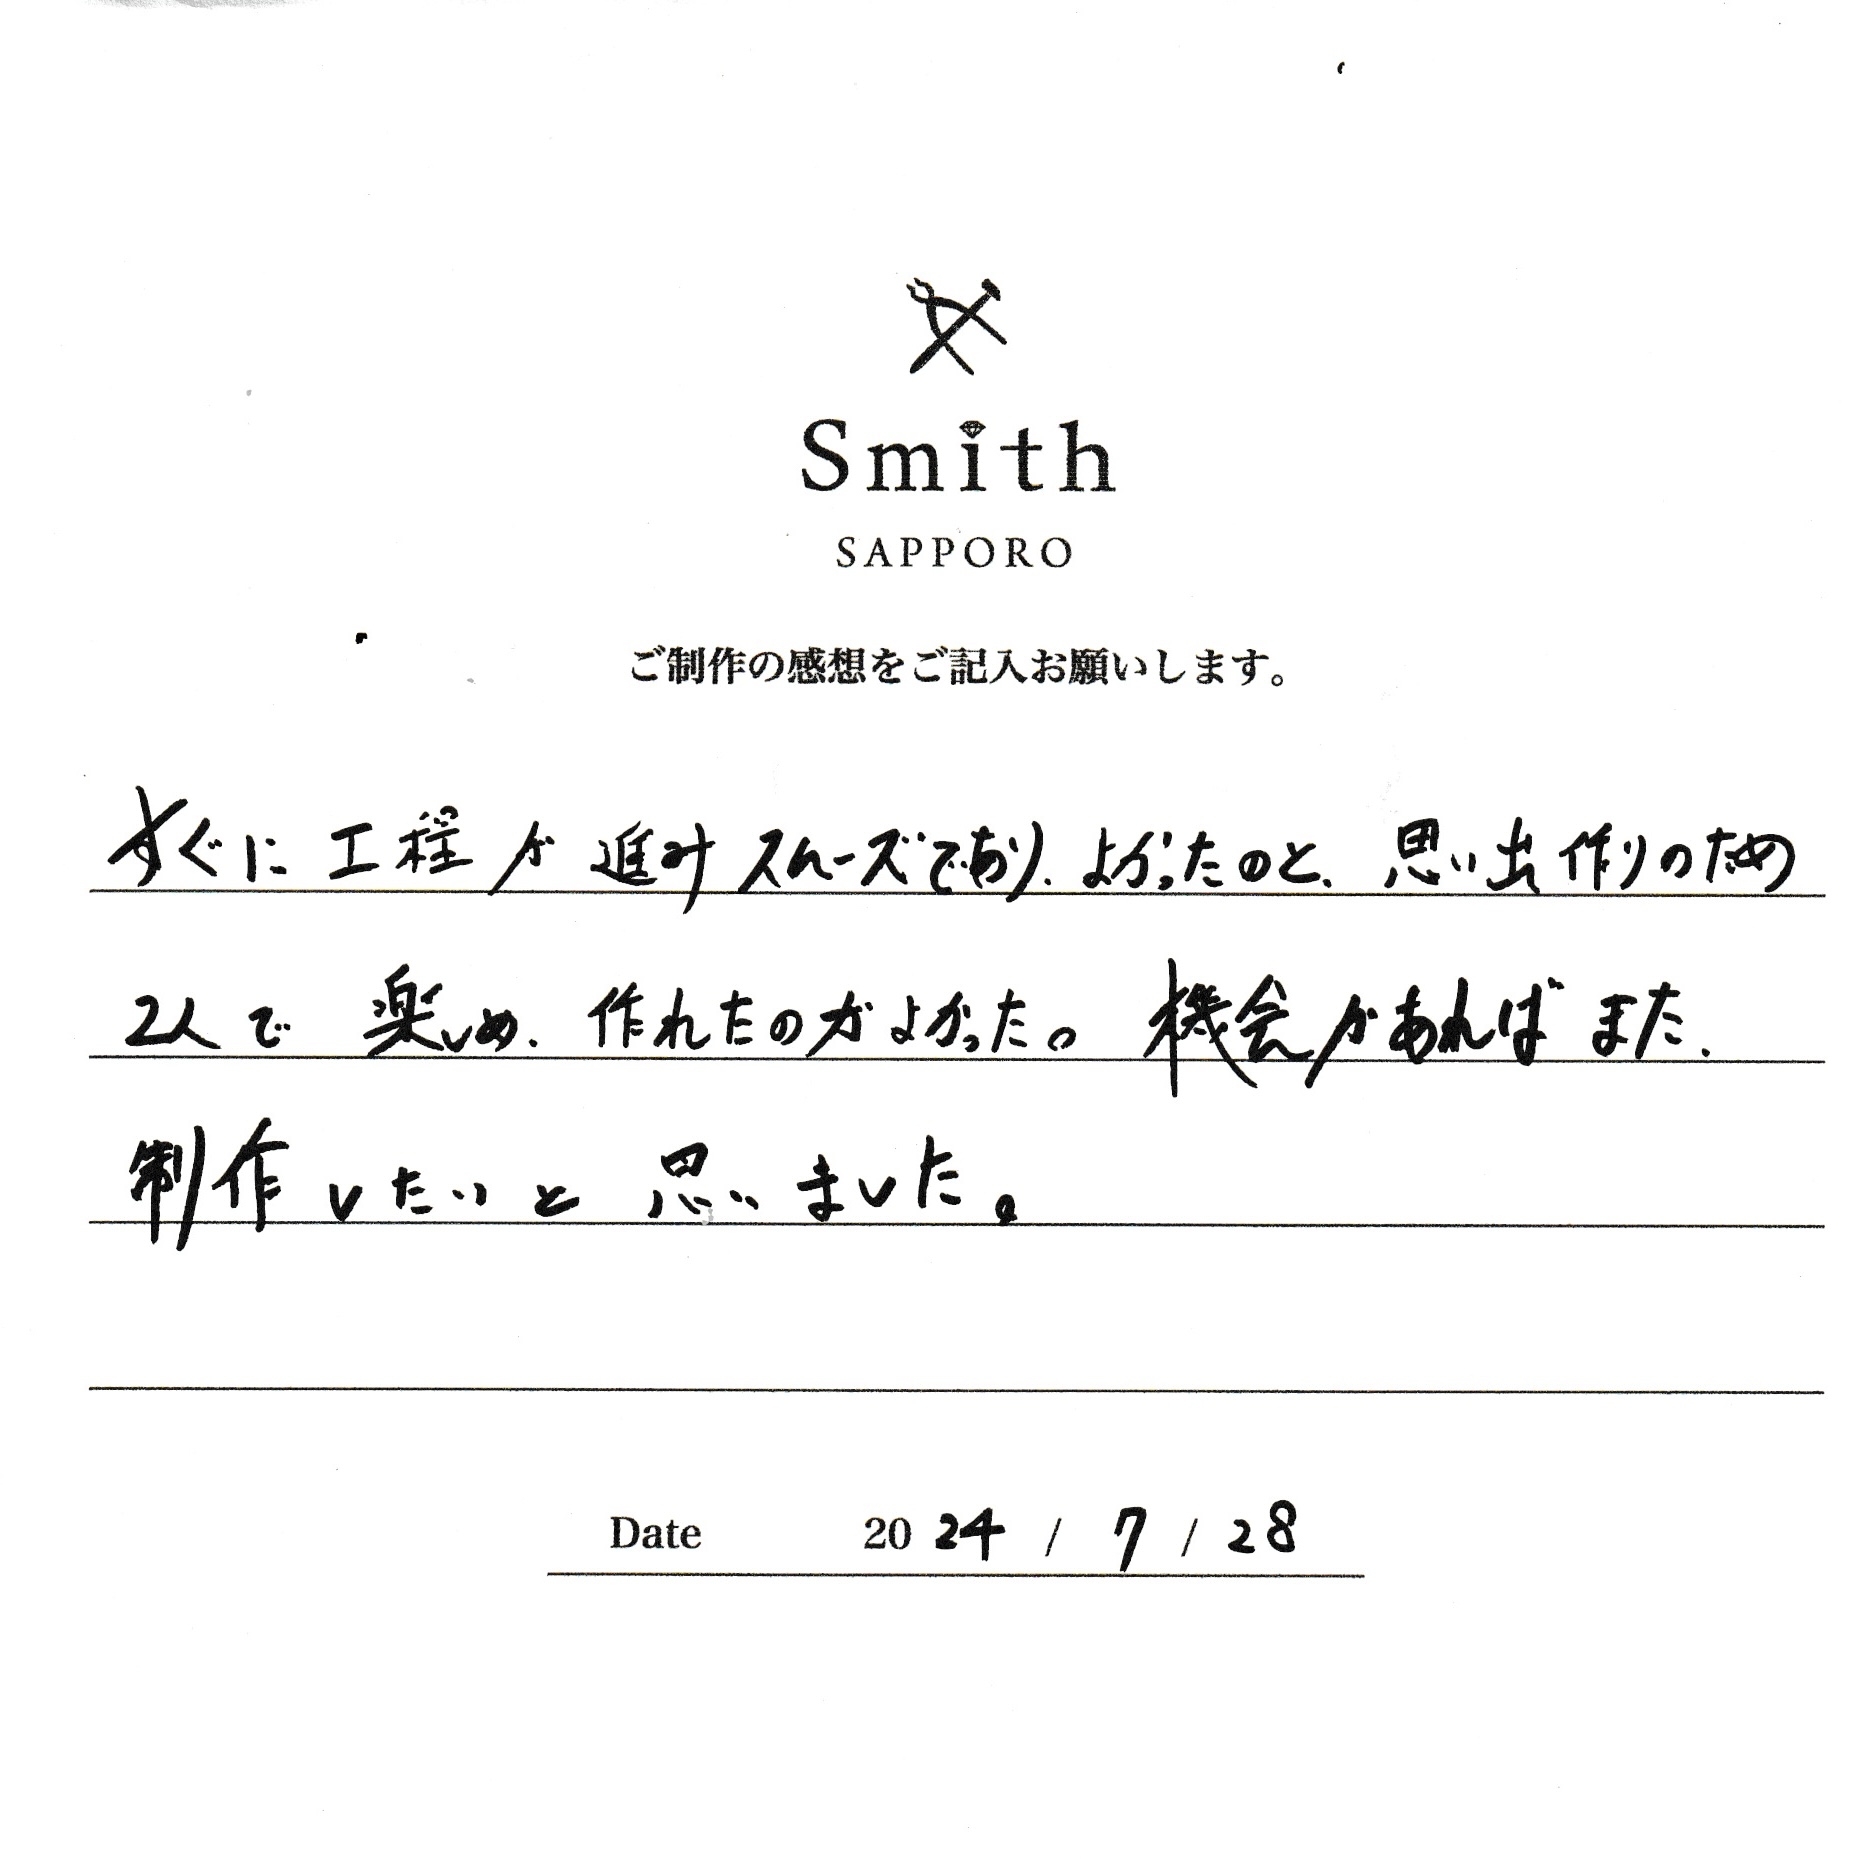 Smith
SAPPORO
ご制作の感想をご記入お願いします。
すぐに工程が進みスムーズであり、よかったのと、思い出作りのため
2人で楽しめ、作れたのがよかった。機会があればまた、
制作したいと思いました。
Date 2024 / 7 / 28